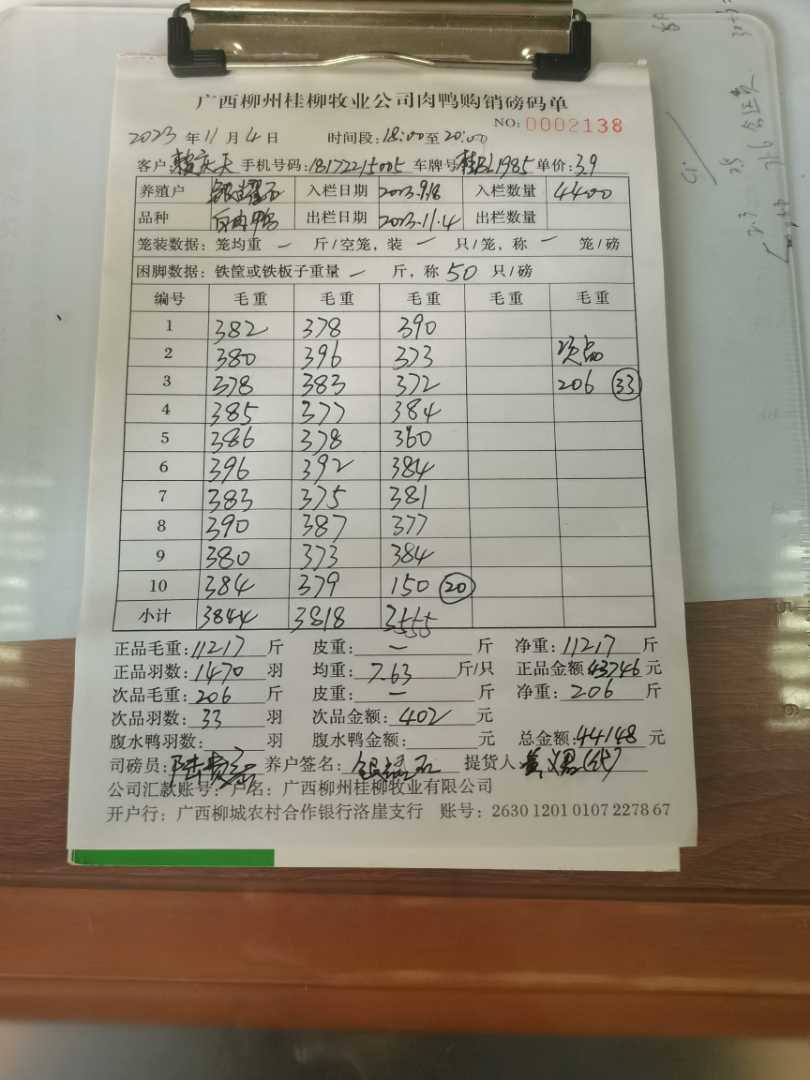 广西柳州桂柳牧业公司肉鸭购销磅码单
NO: 0002138
2023 年 11 月 4 日 时间段: 18:00 至 20:00
客户 赖庆天 手机号码: 18172215005 车牌号 1985 单价: 3.9
养殖户 银耀石 入栏日期 2023.9.18 入栏数量 4400
品种 白肉鸭 出栏日期 2023.11.4 出栏数量
笼装数据: 笼均重 — 斤/空笼, 装 — 只/笼, 称 — 笼/磅
困脚数据: 铁筐或铁板子重量 — 斤, 称 50 只/磅
编号 毛重 毛重 毛重 毛重 毛重
1 382 378 390
2 380 396 373 次品
3 378 383 372 206 33
4 385 377 384
5 386 378 360
6 396 392 384
7 383 375 381
8 390 387 377
9 380 373 384
10 384 379 150 20
小计 3844 3818 3555
正品毛重: 11217 斤 皮重: — 斤 净重: 11217 斤
正品羽数: 1470 羽 均重: 7.63 斤/只 正品金额 43746 元
次品毛重: 206 斤 皮重: — 斤 净重: 206 斤
次品羽数: 33 羽 次品金额: 402 元
腹水鸭羽数: 羽 腹水鸭金额: 元 总金额: 44148 元
司磅员: 养户签名: 银耀石 提货人 (代)
公司汇款账号: 户名: 广西柳州桂柳牧业有限公司
开户行: 广西柳城农村合作银行洛崖支行 账号: 2630 1201 0107 2278 67